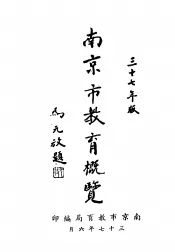 三十七年版
南京市教育概覽
馬元放題
南京市教育局編印
三十七年六月